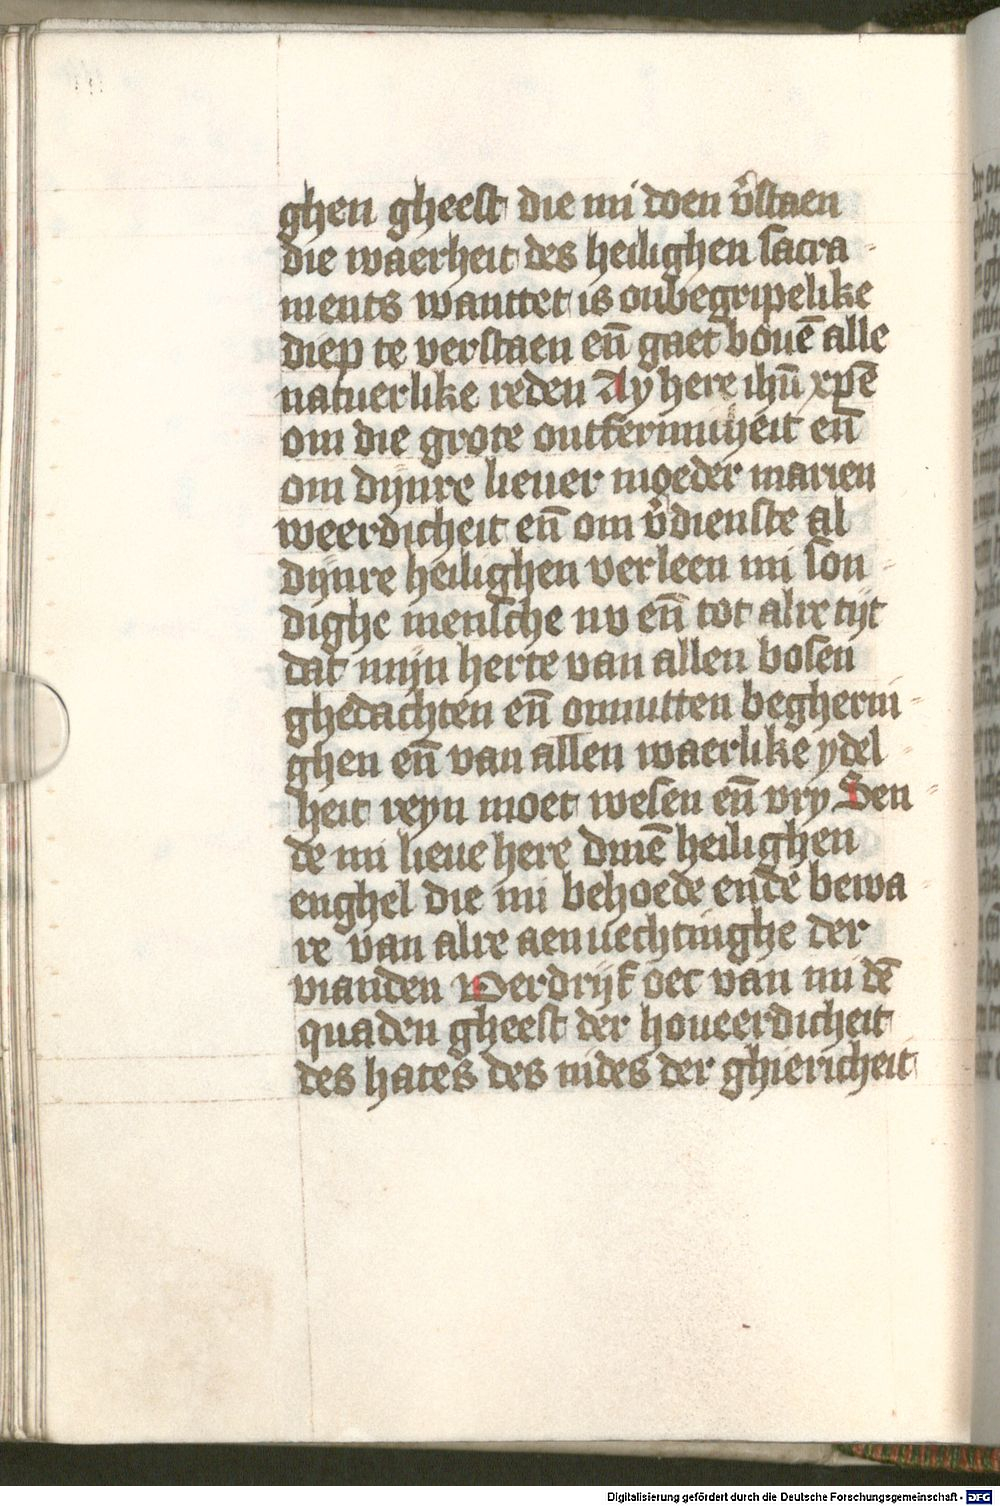 ghen gheest die mi doen v̄staen
die waerheit des heilighen sacra-
ments wanttet is onbegripelike
diep te verstaen en̄ gaet bouē alle
natuerlike reden Ay here ihū xpē
om die grote ontfermicheit en̄
om dijnre lieuer moeder marien
weerdicheit en̄ om v̄dienste al
dijnre heilighen verleen mi son-
dighe mensche nv en̄ tot alre tijt
dat mijn herte van allen bosen
ghedachten en̄ onnutten begherin-
ghen en̄ van allen waerlike ydel-
heit reyn moet wesen en̄ vry Sen-
de mi lieue here dinē heilighen
enghel die mi behoede ende bewa-
re van alre aenuechtinghe der
vianden Verdrijf oec van mi dē
quaden gheest der houeerdicheit
des hates des nides der ghiericheit
Digitalisierung gefördert durch die Deutsche Forschungsgemeinschaft - DFG